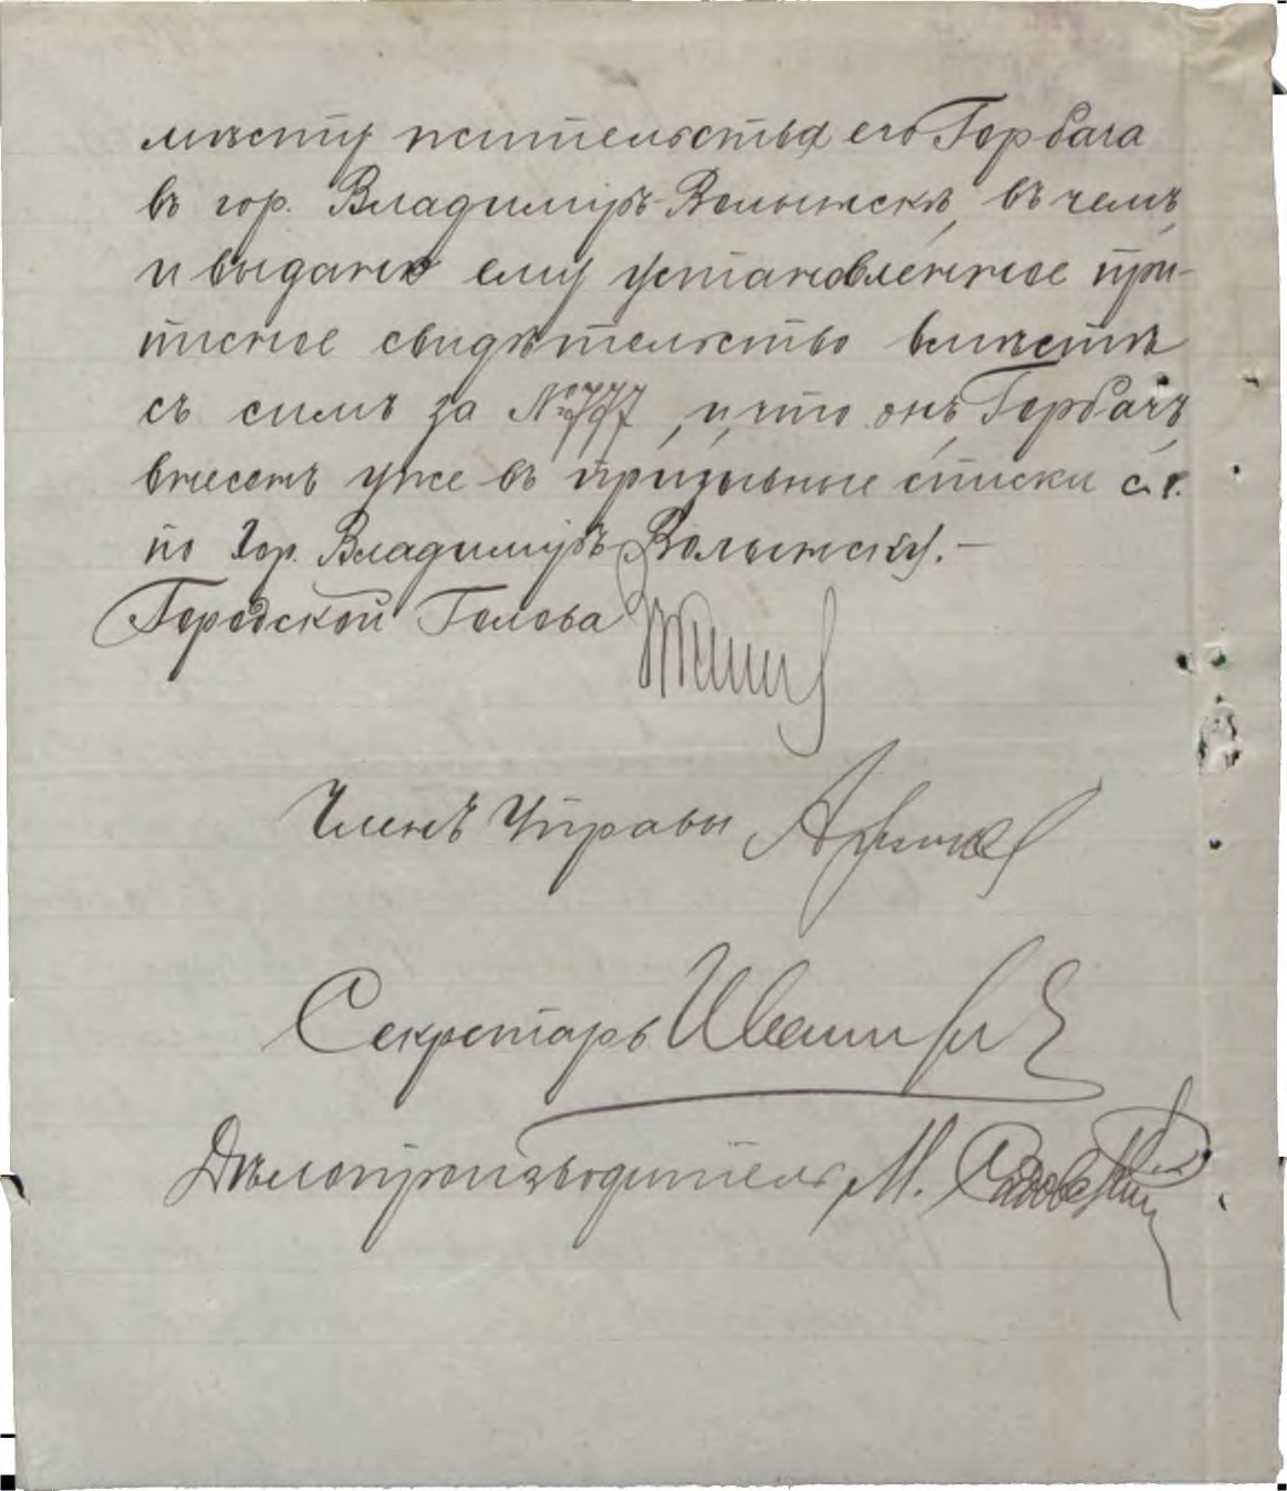 мѣсту жительства его Горбача
въ гор. Владимірѣ-Волынскѣ, въ чемъ,
и выдано ему установленное при-
писное свидѣтельство вмѣстѣ
съ симъ за № 777, и, что онъ, Горбачъ,
внесенъ уже въ призывные списки с. г.
по гор. Владиміръ-Волынску.-
Городской Голова
Членъ Управы
Секретарь
Дѣлопроизводитель М.